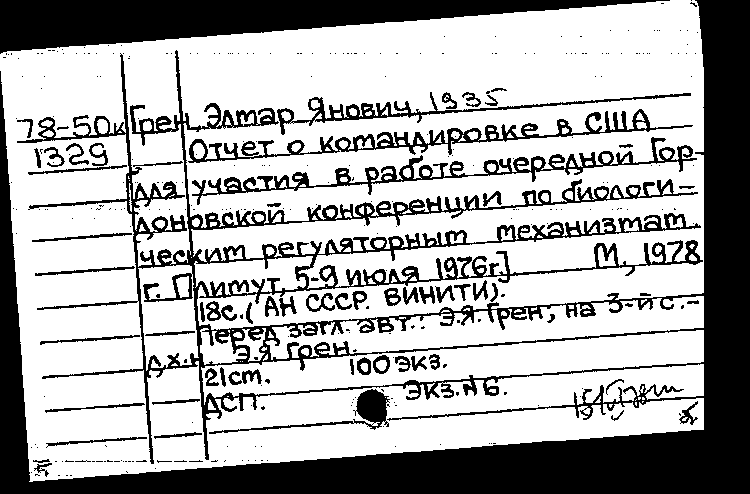 78-50к Грен, Элмар Янович, 1935
1329 Отчет о командировке в США
[для участия в работе очередной Гор-
доновской конференции по биологи-
ческим регуляторным механизмам.
г. Плимут, 5-9 июля 1976г.] М., 1978
18с. (АН СССР. ВИНИТИ).
Перед загл. авт.: Э.Я. Грен, на 3-й с.-
д.х.н. Э.Я. Грен.
21см. 100 экз.
ДСП. Экз.№6.